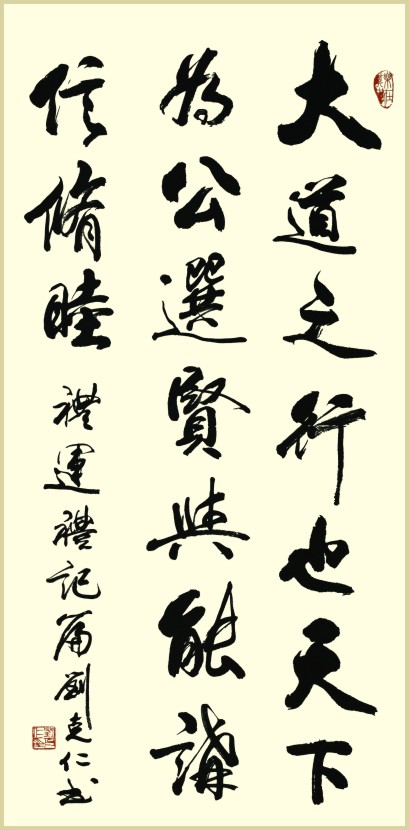 大道之行也天下
為公選賢與能講
信脩睦
禮運禮記篇劉克仁書